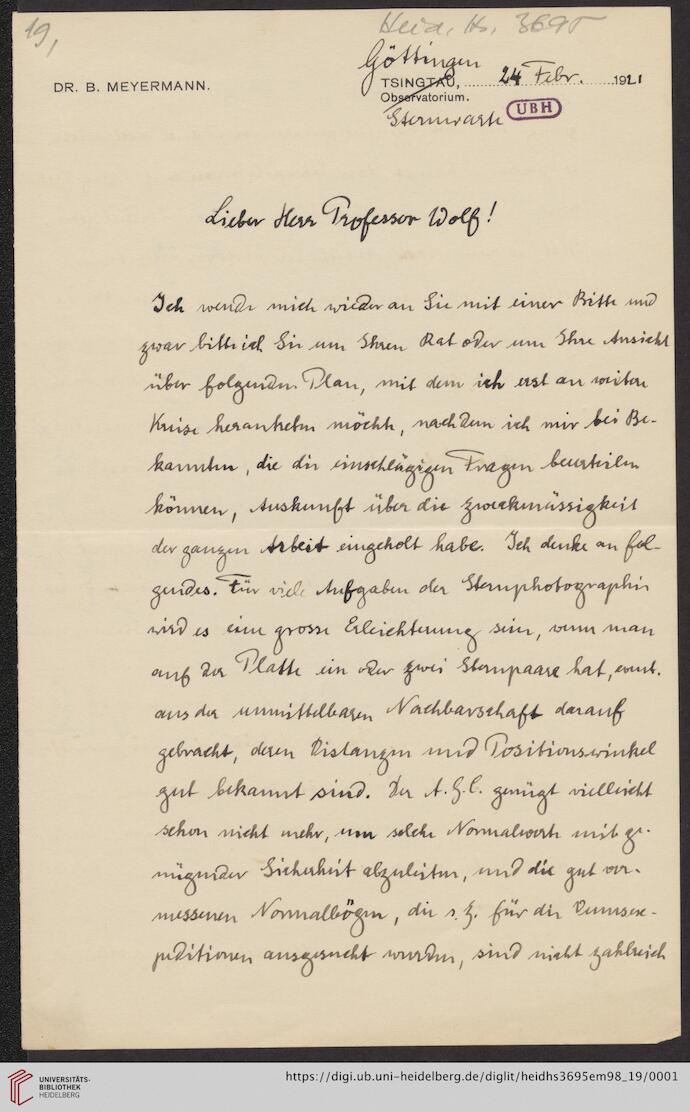 19,
Heid. Hs. 3695
Göttingen
DR. B. MEYERMANN.
TSINGTAU, 24 Febr. 1921
Observatorium.
Sternwarte
UBH
Lieber Herr Professor Wolf!
Ich wende mich wieder an Sie mit einer Bitte und
zwar bitte ich Sie um Ihren Rat oder um Ihre Ansicht
über folgenden Plan, mit dem ich erst an weitere
Kreise herantreten möchte, nachdem ich mir bei Be-
kannten, die die einschlägigen Fragen beurteilen
können, Auskunft über die Zweckmässigkeit
der ganzen Arbeit eingeholt habe. Ich denke an fol-
gendes. Für viele Aufgaben der Sternphotographie
wird es eine grosse Erleichterung sein, wenn man
auf der Platte ein oder zwei Sternpaare hat, event.
aus der unmittelbaren Nachbarschaft darauf
gebracht, deren Distanzen und Positionswinkel
gut bekannt sind. Der A.G.C. genügt vielleicht
schon nicht mehr, um solche Normalwerte mit ge-
nügender Sicherheit abzuleiten, und die gut ver-
messenen Normalbögen, die s. Z. für die Venusex-
peditionen ausgesucht wurden, sind nicht zahlreich
UNIVERSITÄTS-
BIBLIOTHEK
HEIDELBERG
https://digi.ub.uni-heidelberg.de/diglit/heidhs3695em98_19/0001